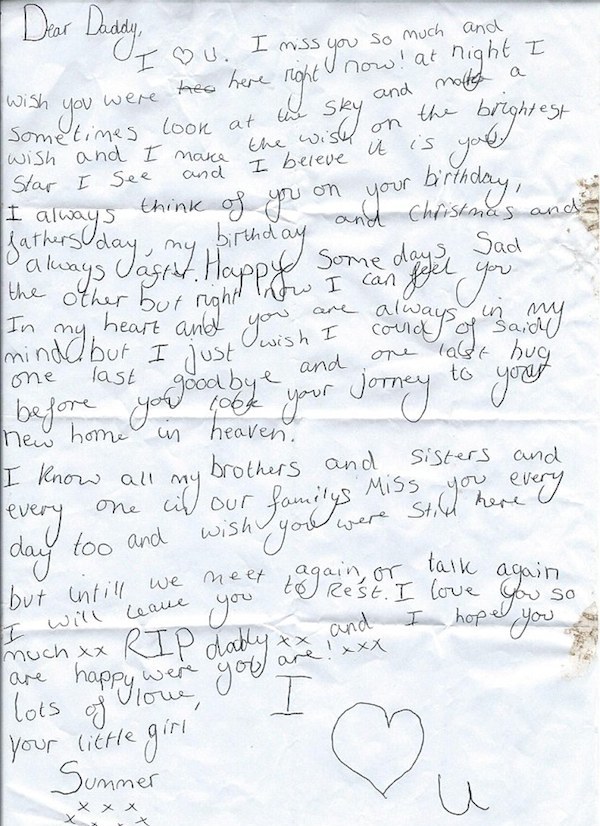 Dear Daddy,
I ♡ U. I miss you so much and
wish you were here right now! at night I
sometimes look at the sky and make a
wish and I make the wish on the brightest
star I see and I beleve it is you.
I always think of you on your birthday,
fathers day, my birthday and christmas and
always after. Happy some days Sad
the other but right now I can feel you
In my heart and you are always in my
mind, but I just wish I could of said
one last goodbye and one last hug
before you took your jorney to your
new home in heaven.
I know all my brothers and sisters and
every one in our familys Miss you every
day too and wish you were still here
but intill we meet again, or talk again
I will leave you to Rest. I love you so
much xx RIP daddy xx and I hope you
are happy were you are! xxx
lots of love,
your little girl
Summer
x x x
x x x x
I
♡
U